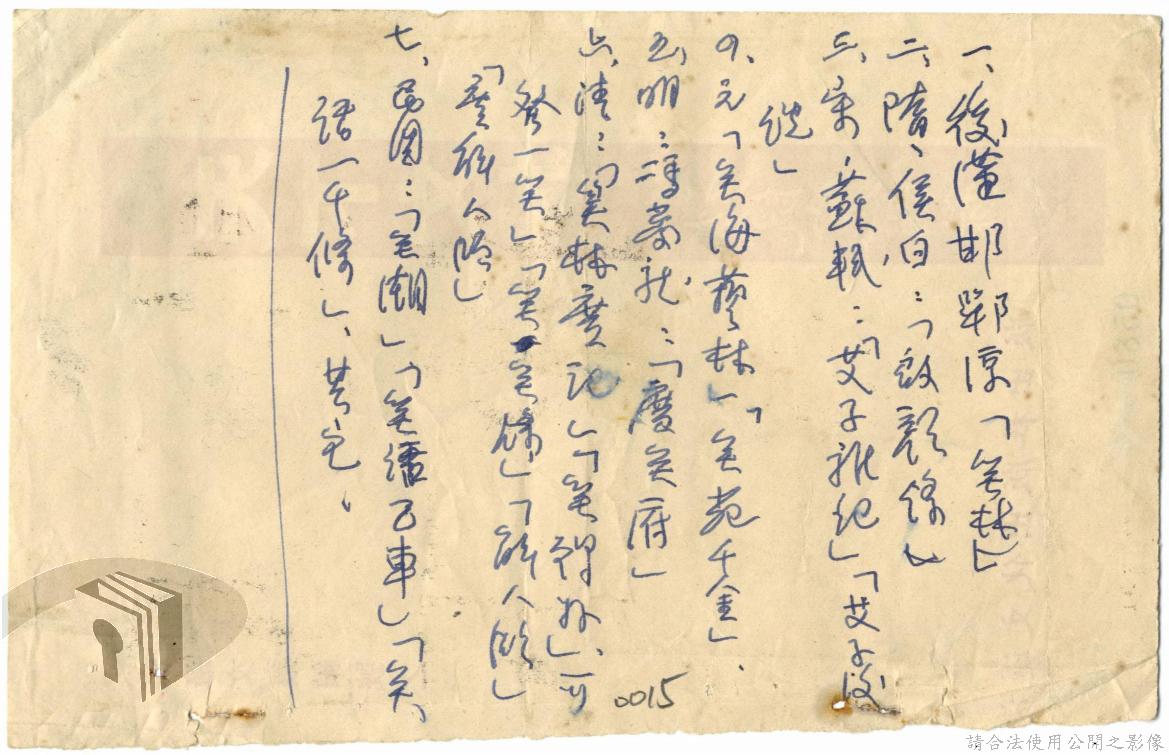 一、後漢邯鄲淳「笑林」
二、隋、侯白：「啟顏錄」
三、宋、蘇軾：「艾子雜記」「艾子後
語」
四、元「笑海叢林」「笑苑千金」、
五、明：馮夢龍：「廣笑府」
六、清：「笑林廣記」「笑得好」、「可
發一笑」「笑笑錄」「解人頤」
「廣解人頤」
七、民國：「笑潮」「笑話五車」「笑
話一千條」、其它、
0015
請合法使用公開之影像